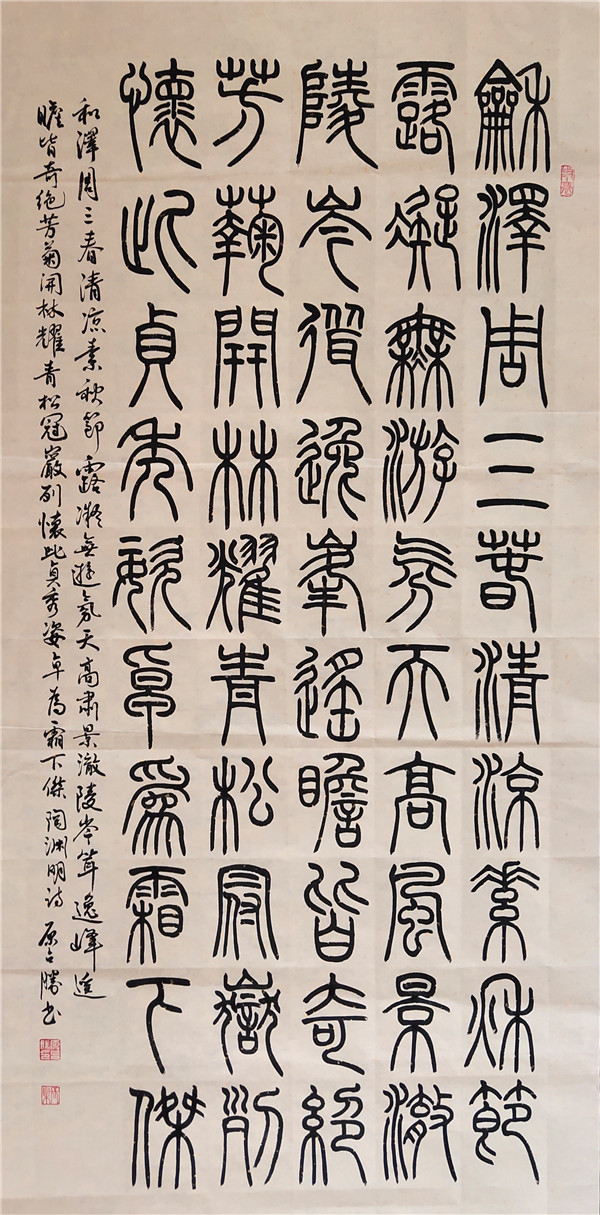 龢澤周三春清涼素秋節
露凝無游氛天高風景澈
陵岑聳逸峯遥瞻皆奇絕
芳鞠開林耀青松冠巖列
懷此貞秀姿卓爲霜下傑
和澤周三春清凉素秋節露凝無遊氛天高肅景澈陵岑耸逸峰遥
瞻皆奇絕芳菊開林耀青松冠巖列懷此貞秀姿卓為霜下傑 陶渊明诗 原勝书